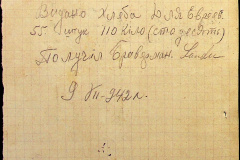 Видано Хлѣба для Евреев.
55 штук 110 Кило (сто десять)
Получил Браверман.
9 VII-942 г.